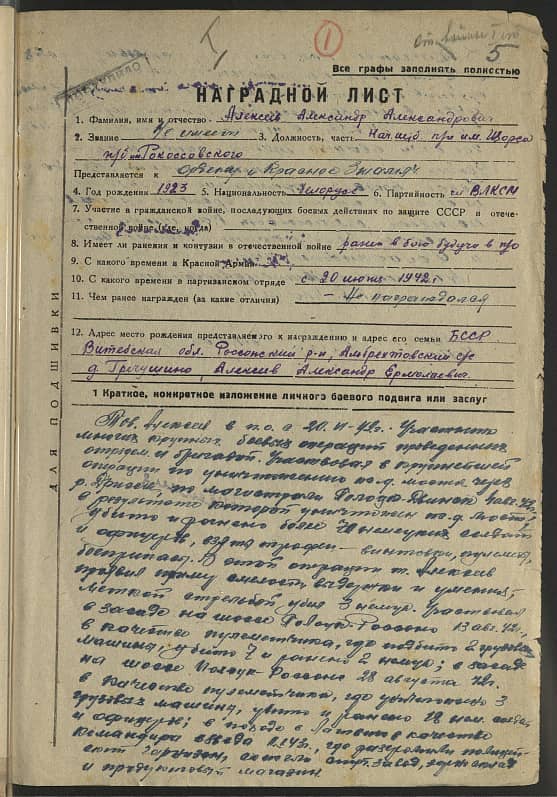 1
5
Все графы заполнять полностью
НАГРАДНОЙ ЛИСТ
1. Фамилия, имя и отчество Алексеев Александр Александрович
2. Звание не имеет 3. Должность, часть Нач. п/о им. Щорса
п/б Рокоссовского
Представляется к ордену „Красное Знамя“
4. Год рождения 1923 5. Национальность белорус 6. Партийность чл ВЛКСМ
7. Участие в гражданской войне, последующих боевых действиях по защите СССР и отече-
ственной войне (где, когда)
8. Имеет ли ранения и контузии в отечественной войне ранен в бою будучи в п/о
9. С какого времени в Красной Армии
10. С какого времени в партизанском отряде с 20 июня 1942 г
11. Чем ранее награжден (за какие отличия) — Не награждался
12. Адрес место рождения представляемого к награждению и адрес его семьи БССР
Витебская обл. Россонский р-н, Альбрехтовский с/с
д. Алексеев Александр Ермолаевич
1 Краткое, конкретное изложение личного боевого подвига или заслуг
Тов. Алексеев в п.о. с 20.VI-42г. Участник
многих крупных боевых операций проведенных
отрядом и бригадой. Участвовал в крупнейшей
операции по уничтожению ж.д. моста через
р. Дрисса, на магистрали Полоцк-
в результате которой уничтожен ж.д. мост,
убито и ранено более 70 немецких солдат
и офицеров, взяты трофеи – винтовки,
боеприпасы. В этой операции т. Алексеев
проявил смелость, выдержку и умение,
меткой стрельбой убил 3 немцев. Участвовал
в засаде на шоссе Полоцк-Россоны 13 авг. 42г.,
в качестве пулеметчика, где подбито 2 грузовых
машины, убито 7 и ранено 2 немца; в засаде
на шоссе Полоцк-Россоны 28 августа 42г.
в качестве пулеметчика, где уничтожено 3
грузовых машины, убито и ранено 28 нем. солдат
и офицеров; в походе в Латвию в качестве
командира взвода где разгромили полицей-
ский гарнизон, сожгли спирт. завод,
и продуктовый магазин.
ДЛЯ ПОДШИВКИ